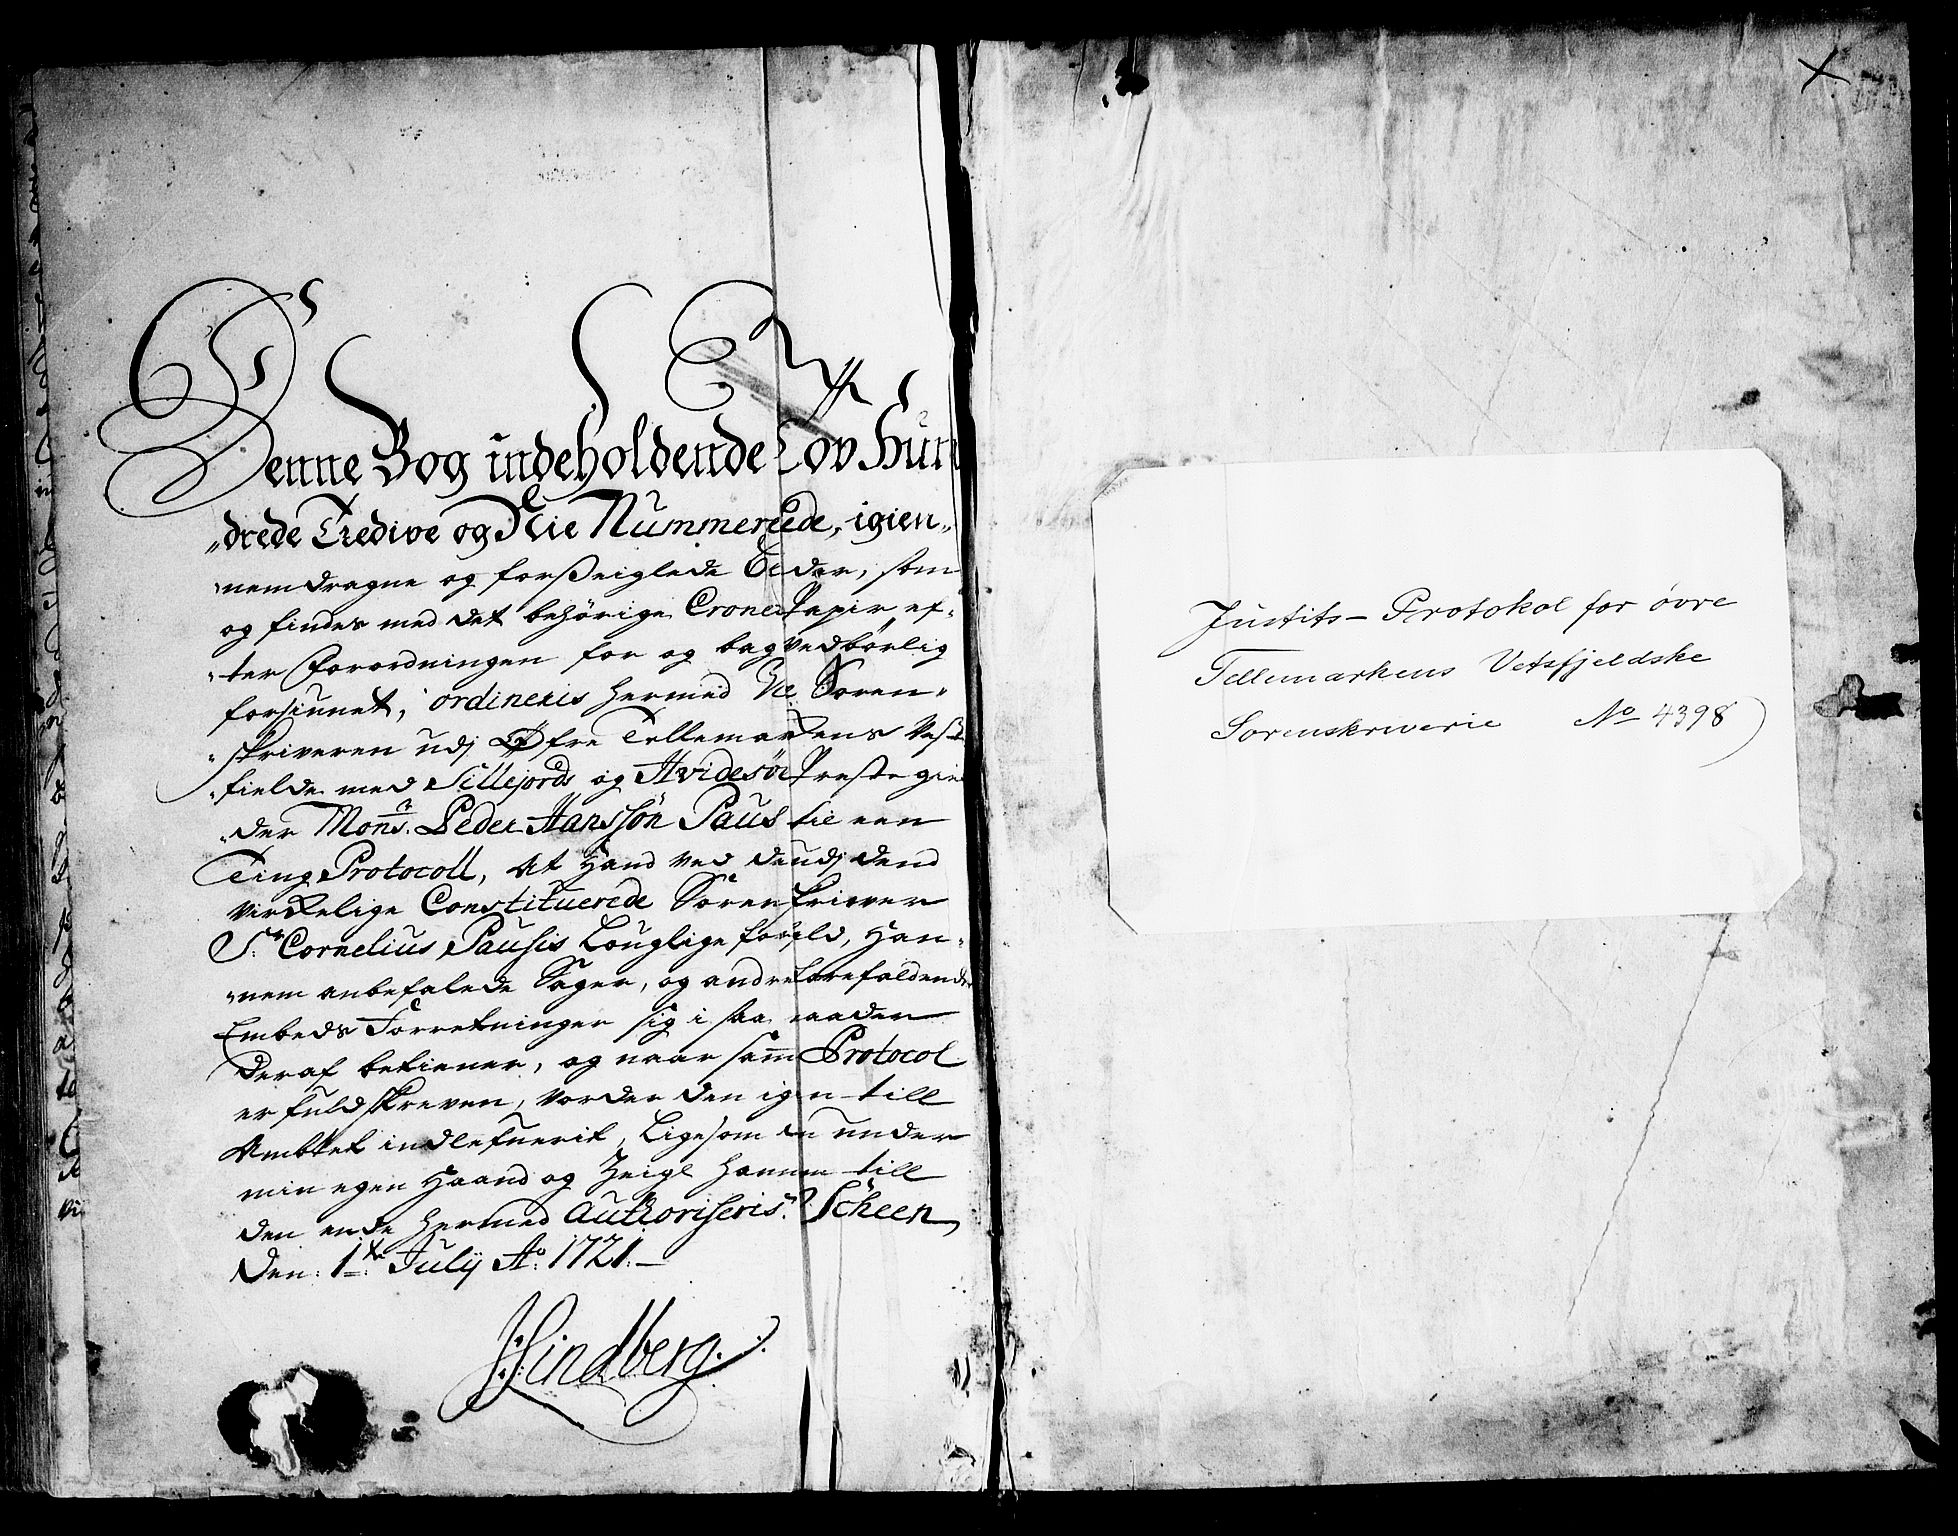 Denne Bog indeholdende Tov Hun
„drede Tredive og Nie Nummererede, igien„
nemdragne og forseiglede Bider, som
og findes med det behörige Croned Papir, ef-
„ter Forordningen for og bag vedbörlig
forsiunet; ordineris hermed Vice Soren„
„skriveren udj Öfre Tellemarkens Vest
„fielde med Sillejords og Hvidesöe Prestegiel
„der Mons.r Peder Hanssön Paus til een
Ting Protocoll, At Hand ved den udj dend
virkelige Constituerede Sörenskriver
S.r Cornelius Pausis Louglige forfald, Han-
„nem anbefalede Sager, og andre forefaldende
Embeds Forretninger sig i saa maader
deraf betiener, og naar samme Protocol
er fuldskreven, vorder den igien till
Ambtet indlefuerit, Ligesom den under
min egen Haand og Zeigl hannem till
den ende hermed Authoriseris. Scheen,
Den: 1.te July A.o 1721.
H: Lindberg.
Justits- Protokol for övre
Tellemarkens Vetsfjeldske
Sorenskriverie No 4398